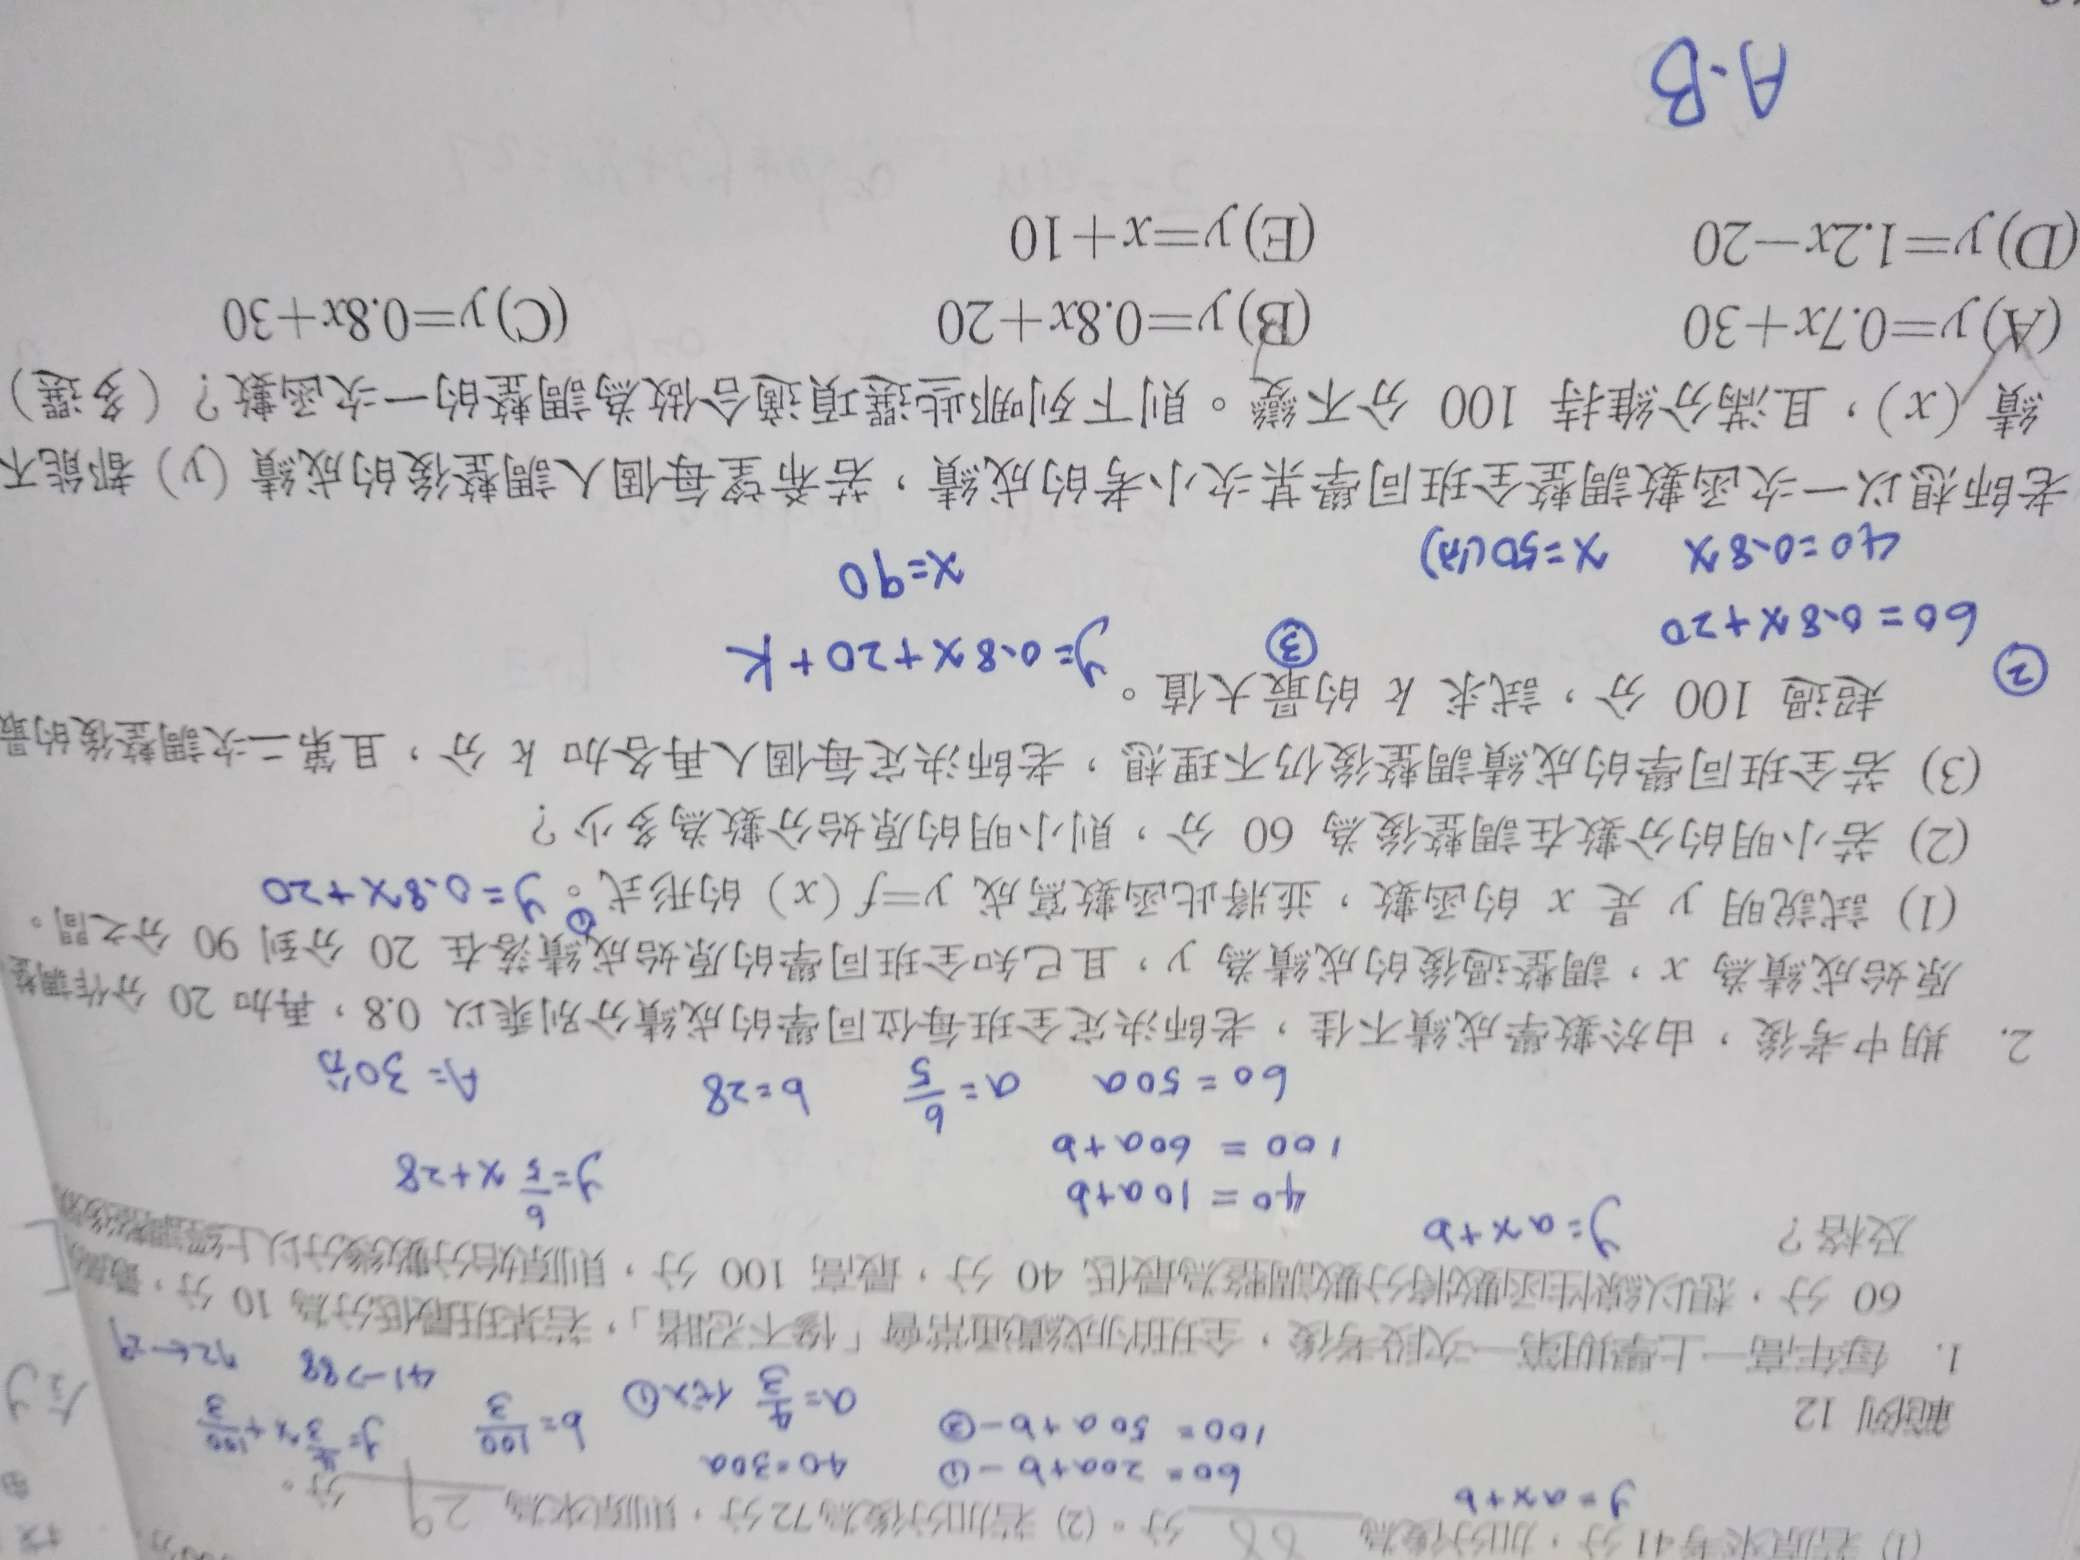 (1) 若原來考41分，加分後為 88 分。(2) 若加分後為72分，則原來為 29 分。
y=ax+b
60=20a+b-①
100=50a+b-②
40=30a
a=4/3 代入①
b=100/3
y=4/3x+100/3
41→88
72←29
範例 12
1. 每年高一上學期第一次段考後，全班的成績通常會「慘不忍睹」，若某班最低分為 10 分，最高
60 分，想以線性函數將分數調整為最低 40 分，最高 100 分，則原始分數幾分以上經調整後
及格？
y=ax+b
40=10a+b
100=60a+b
60=50a
a=6/5
b=28
y=6/5x+28
A=30分
2. 期中考後，由於數學成績不佳，老師決定全班每位同學的成績分別乘以 0.8，再加 20 分作調整
原始成績為 x，調整過後的成績為 y，且已知全班同學的原始成績落在 20 分到 90 分之間。
(1) 試說明 y 是 x 的函數，並將此函數寫成 y=f(x) 的形式。 ① y=0.8x+20
(2) 若小明的分數在調整後為 60 分，則小明的原始分數為多少？
(3) 若全班同學的成績調整後仍不理想，老師決定每個人再各加 k 分，且第二次調整後的最
超過 100 分，試求 k 的最大值。
②
60=0.8x+20
40=0.8x x=50(分)
③
y=0.8x+20+k
x=90
老師想以一次函數調整全班同學某次小考的成績，若希望每個人調整後的成績 (y) 都能不
績 (x)，且滿分維持 100 分不變。則下列哪些選項適合做為調整的一次函數？（多選）
(A) y=0.7x+30 (B) y=0.8x+20 (C) y=0.8x+30
(D) y=1.2x−20 (E) y=x+10
A.B